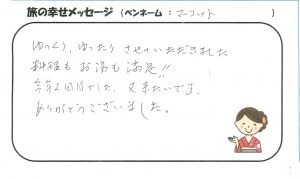 旅の幸せメッセージ (ペンネーム：マーコット)
ゆっくり、ゆったり させていただきました
料理も お湯も 満足!!
2回目でした、又来たいです。
ありがとうございました。